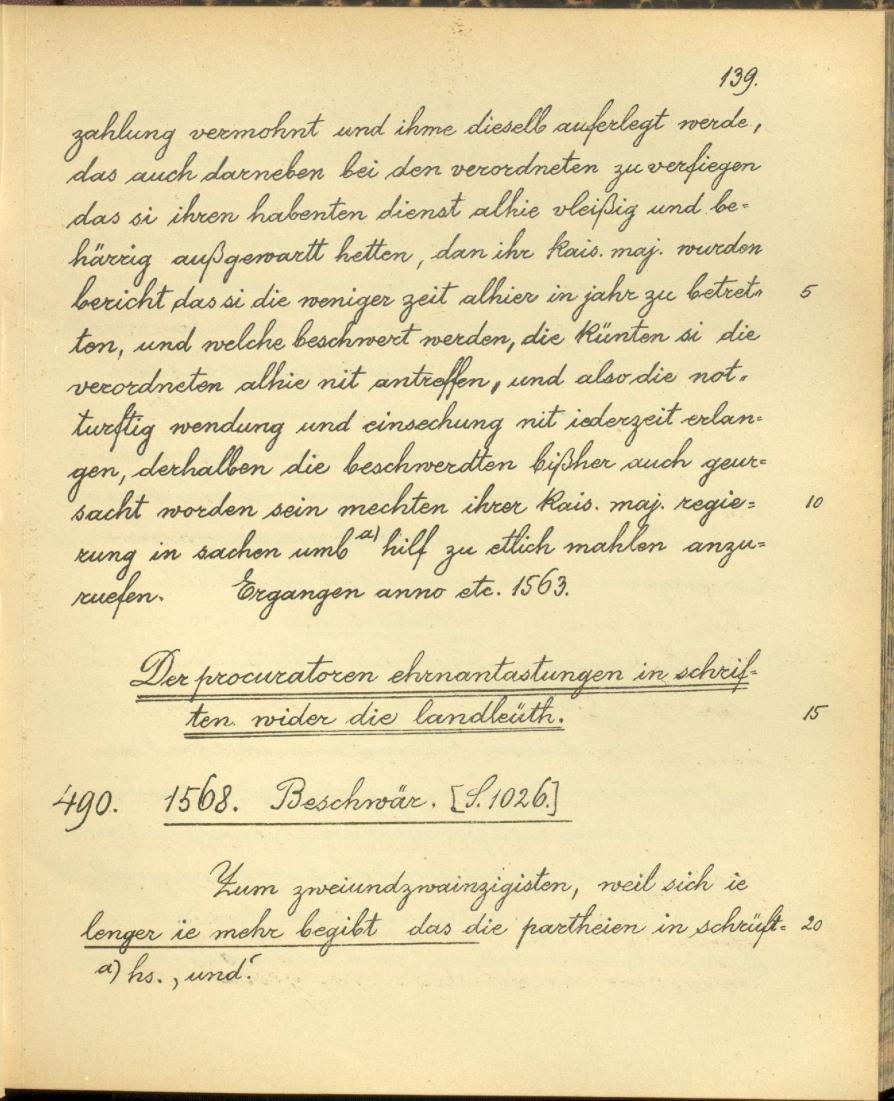 139.
zahlung vermohnt und ihme dieselb auferlegt werde,
das auch darneben bei den verordneten zu verfiegen
das si ihren habenten dienst alhie vleißig und be=
härrig außgewartt hetten, dan ihr kais. maj. wurden
bericht das si die weniger zeit alhier in jahr zu betret= 5
ten, und welche beschwert werden, die künten si die
verordneten alhie nit antreffen, und also die not=
turftig wendung und einsechung nit iederzeit erlan=
gen, derhalben die beschwerdten bißher auch geur=
sacht worden sein mechten ihrer kais. maj. regie= 10
rung in sachen umb a) hilf zu etlich mahlen anzu=
ruefen. Ergangen anno etc. 1563.
Der procuratoren ehrnantastungen in schrif=
ten wider die landleüth. 15
490. 1568. Beschwär. [S. 1026.]
Zum zweiundzwainzigisten, weil sich ie
lenger ie mehr begibt das die partheien in schrüft= 20
a) hs. „und“.